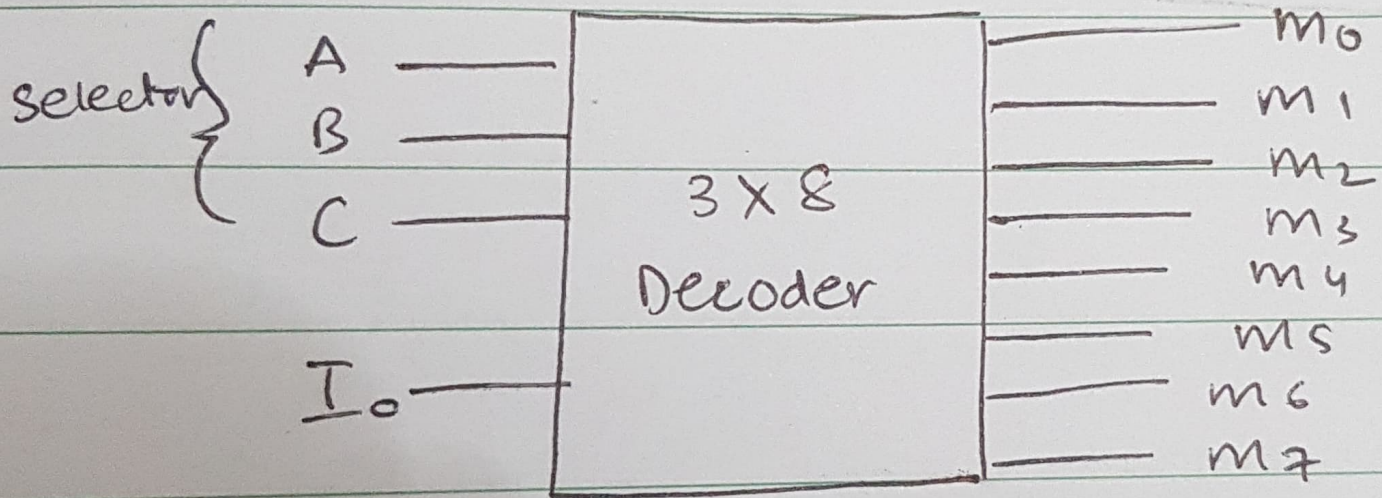 selector
A
B
C
I0
3 X 8
Decoder
m0
m1
m2
m3
m4
m5
m6
m7